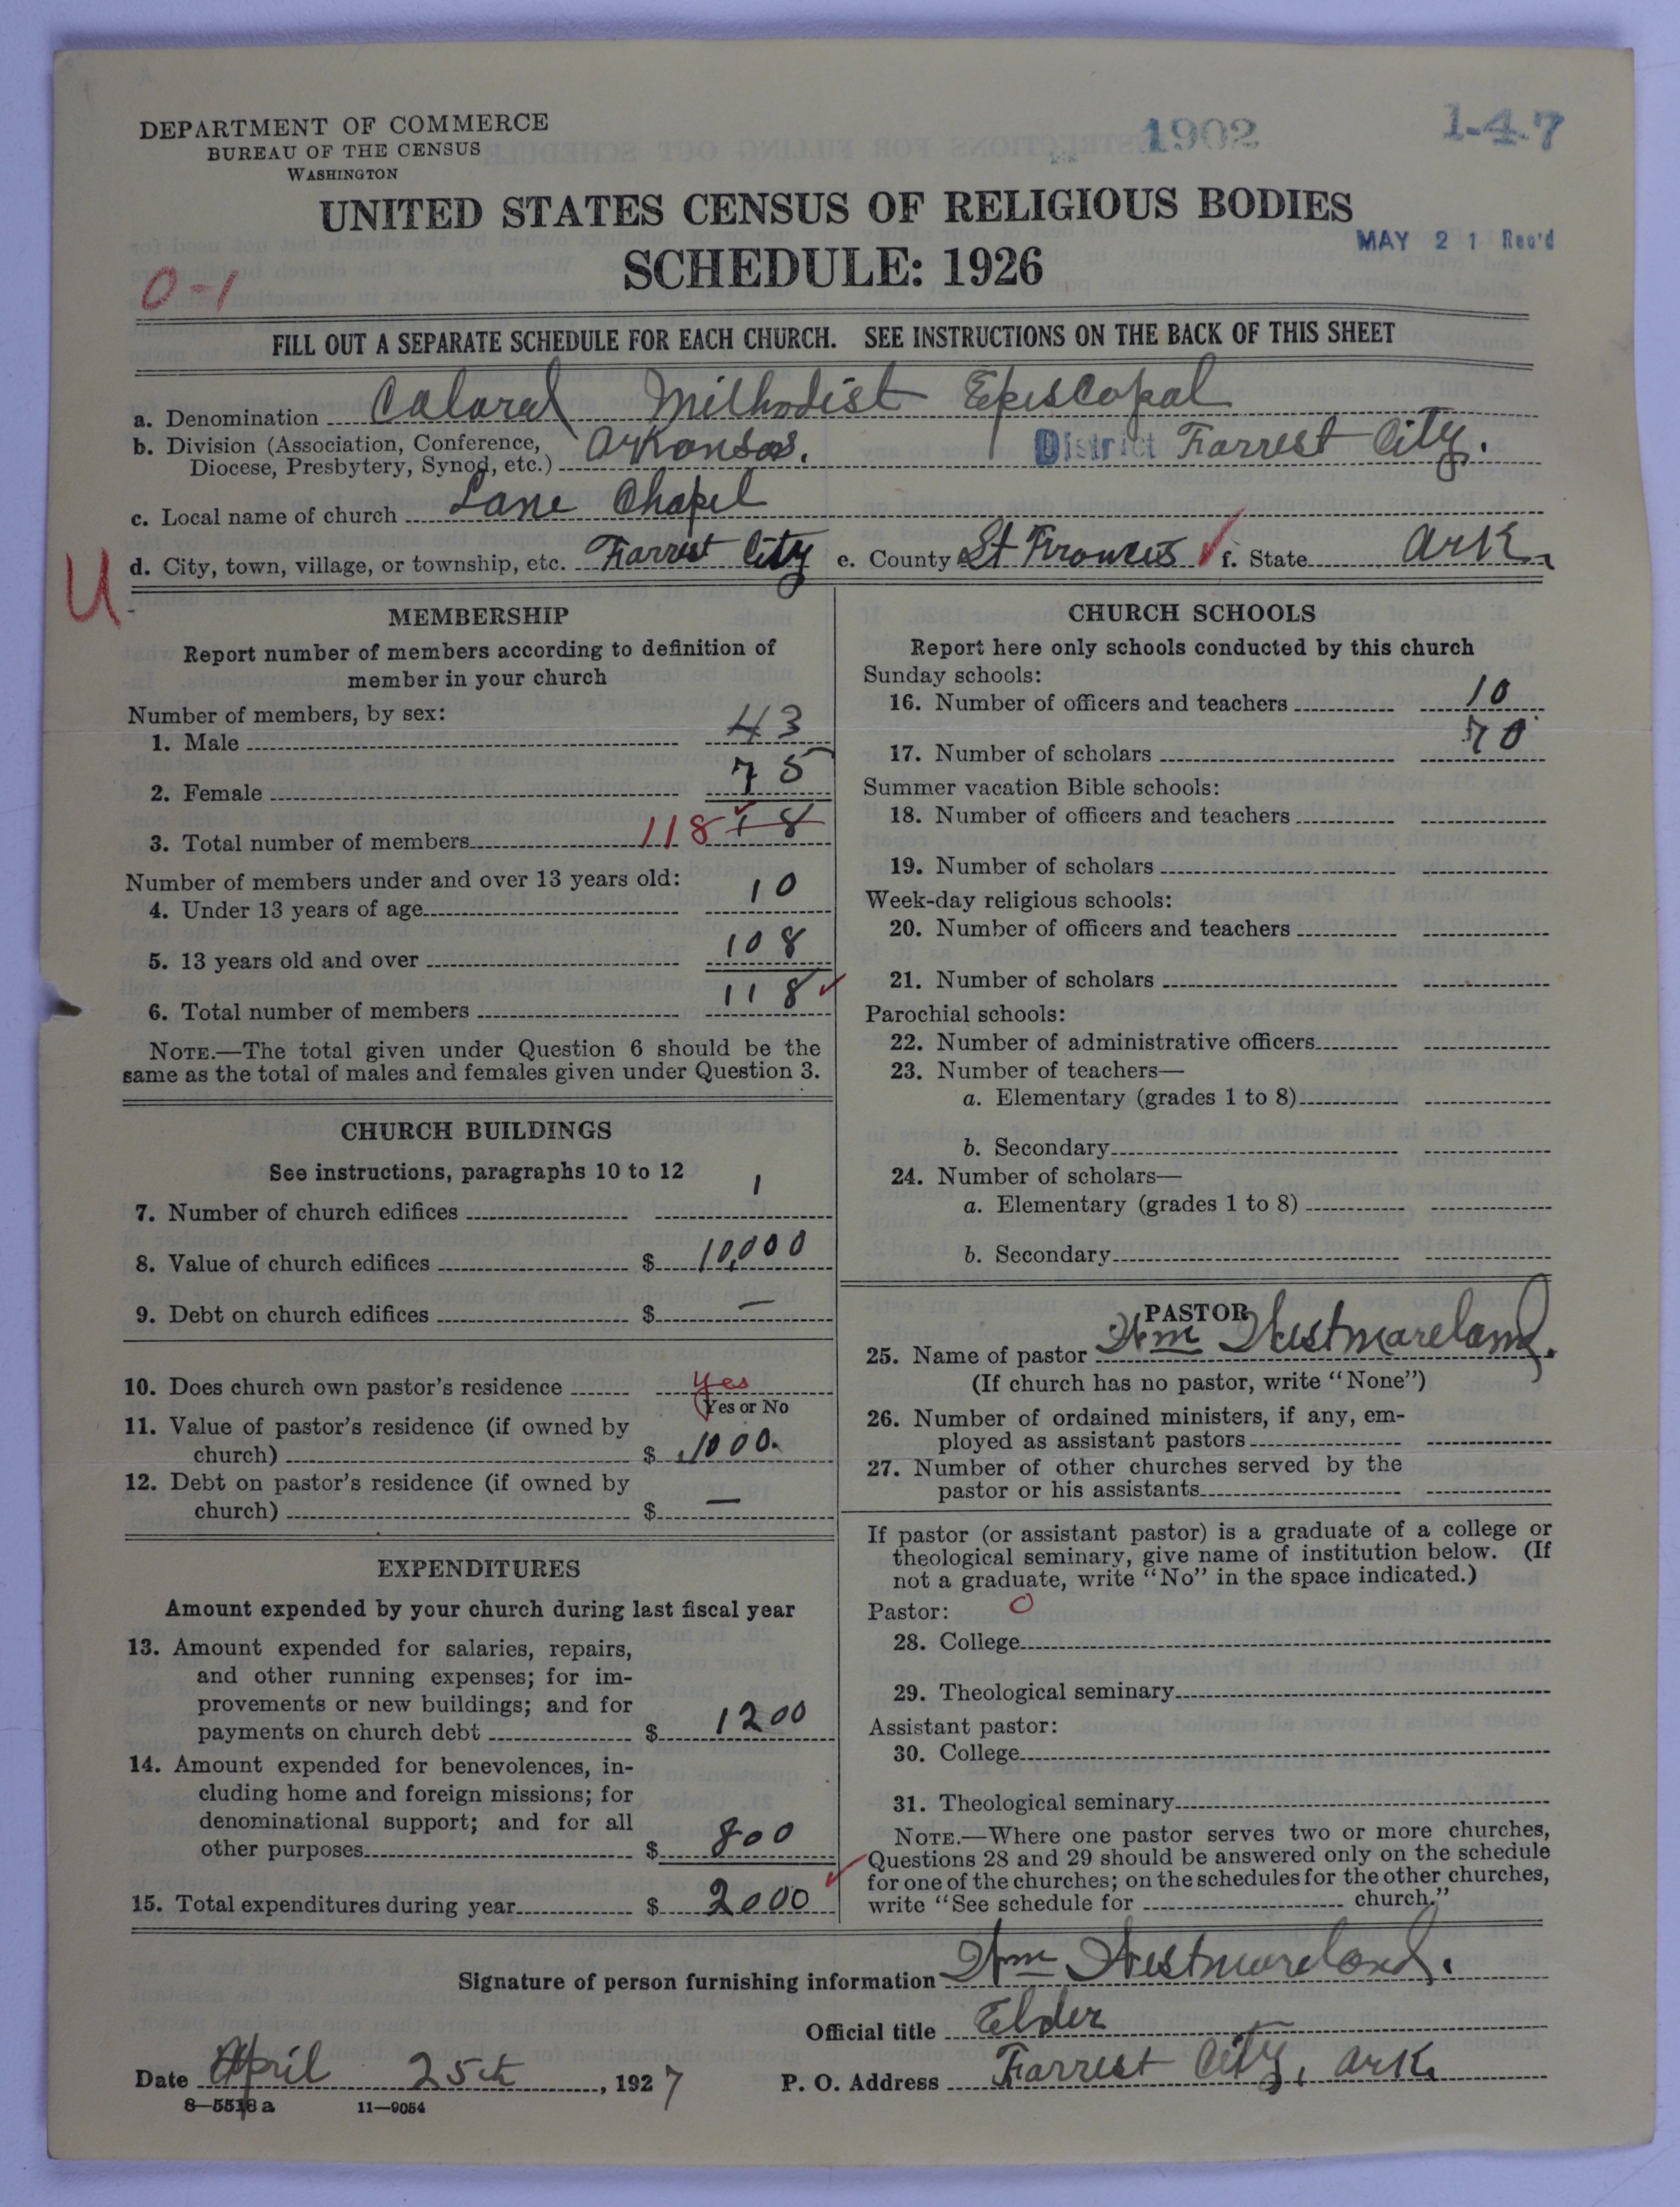 DEPARTMENT OF COMMERCE
BUREAU OF THE CENSUS
WASHINGTON
1902
1-4-7
UNITED STATES CENSUS OF RELIGIOUS BODIES
MAY 21 Rec'd
SCHEDULE: 1926
0-1
FILL OUT A SEPARATE SCHEDULE FOR EACH CHURCH. SEE INSTRUCTIONS ON THE BACK OF THIS SHEET
a. Denomination Colored Methodist Episcopal
b. Division (Association, Conference,
Diocese, Presbytery, Synod, etc.) Arkansas. District Forrest City.
c. Local name of church Lane Chapel
d. City, town, village, or township, etc. Forrest City e. County St Frances ✓ f. State Ark.
U
MEMBERSHIP
Report number of members according to definition of
member in your church
Number of members, by sex:
1. Male 43
2. Female 75
3. Total number of members 118 18
Number of members under and over 13 years old:
4. Under 13 years of age 10
5. 13 years old and over 108
6. Total number of members 118 ✓
NOTE.—The total given under Question 6 should be the
same as the total of males and females given under Question 3.
CHURCH BUILDINGS
See instructions, paragraphs 10 to 12
7. Number of church edifices 1
8. Value of church edifices $ 10,000
9. Debt on church edifices $ —
10. Does church own pastor's residence yes
Yes or No
11. Value of pastor's residence (if owned by
church) $ 1000.
12. Debt on pastor's residence (if owned by
church) $ —
EXPENDITURES
Amount expended by your church during last fiscal year
13. Amount expended for salaries, repairs,
and other running expenses; for im-
provements or new buildings; and for
payments on church debt $ 1200
14. Amount expended for benevolences, in-
cluding home and foreign missions; for
denominational support; and for all
other purposes $ 800
15. Total expenditures during year $ 2000 ✓
CHURCH SCHOOLS
Report here only schools conducted by this church
Sunday schools:
16. Number of officers and teachers 10
17. Number of scholars 70
Summer vacation Bible schools:
18. Number of officers and teachers
19. Number of scholars
Week-day religious schools:
20. Number of officers and teachers
21. Number of scholars
Parochial schools:
22. Number of administrative officers
23. Number of teachers—
a. Elementary (grades 1 to 8)
b. Secondary
24. Number of scholars—
a. Elementary (grades 1 to 8)
b. Secondary
PASTOR
25. Name of pastor Wm Westmoreland.
(If church has no pastor, write "None")
26. Number of ordained ministers, if any, em-
ployed as assistant pastors
27. Number of other churches served by the
pastor or his assistants
If pastor (or assistant pastor) is a graduate of a college or
theological seminary, give name of institution below. (If
not a graduate, write "No" in the space indicated.)
Pastor: 0
28. College
29. Theological seminary
Assistant pastor:
30. College
31. Theological seminary
NOTE.—Where one pastor serves two or more churches,
Questions 28 and 29 should be answered only on the schedule
for one of the churches; on the schedules for the other churches,
write "See schedule for church."
Signature of person furnishing information Wm Westmoreland.
Official title Elder
Date April 25th, 1927 P. O. Address Forrest City, Ark.
8—5518a 11—9054